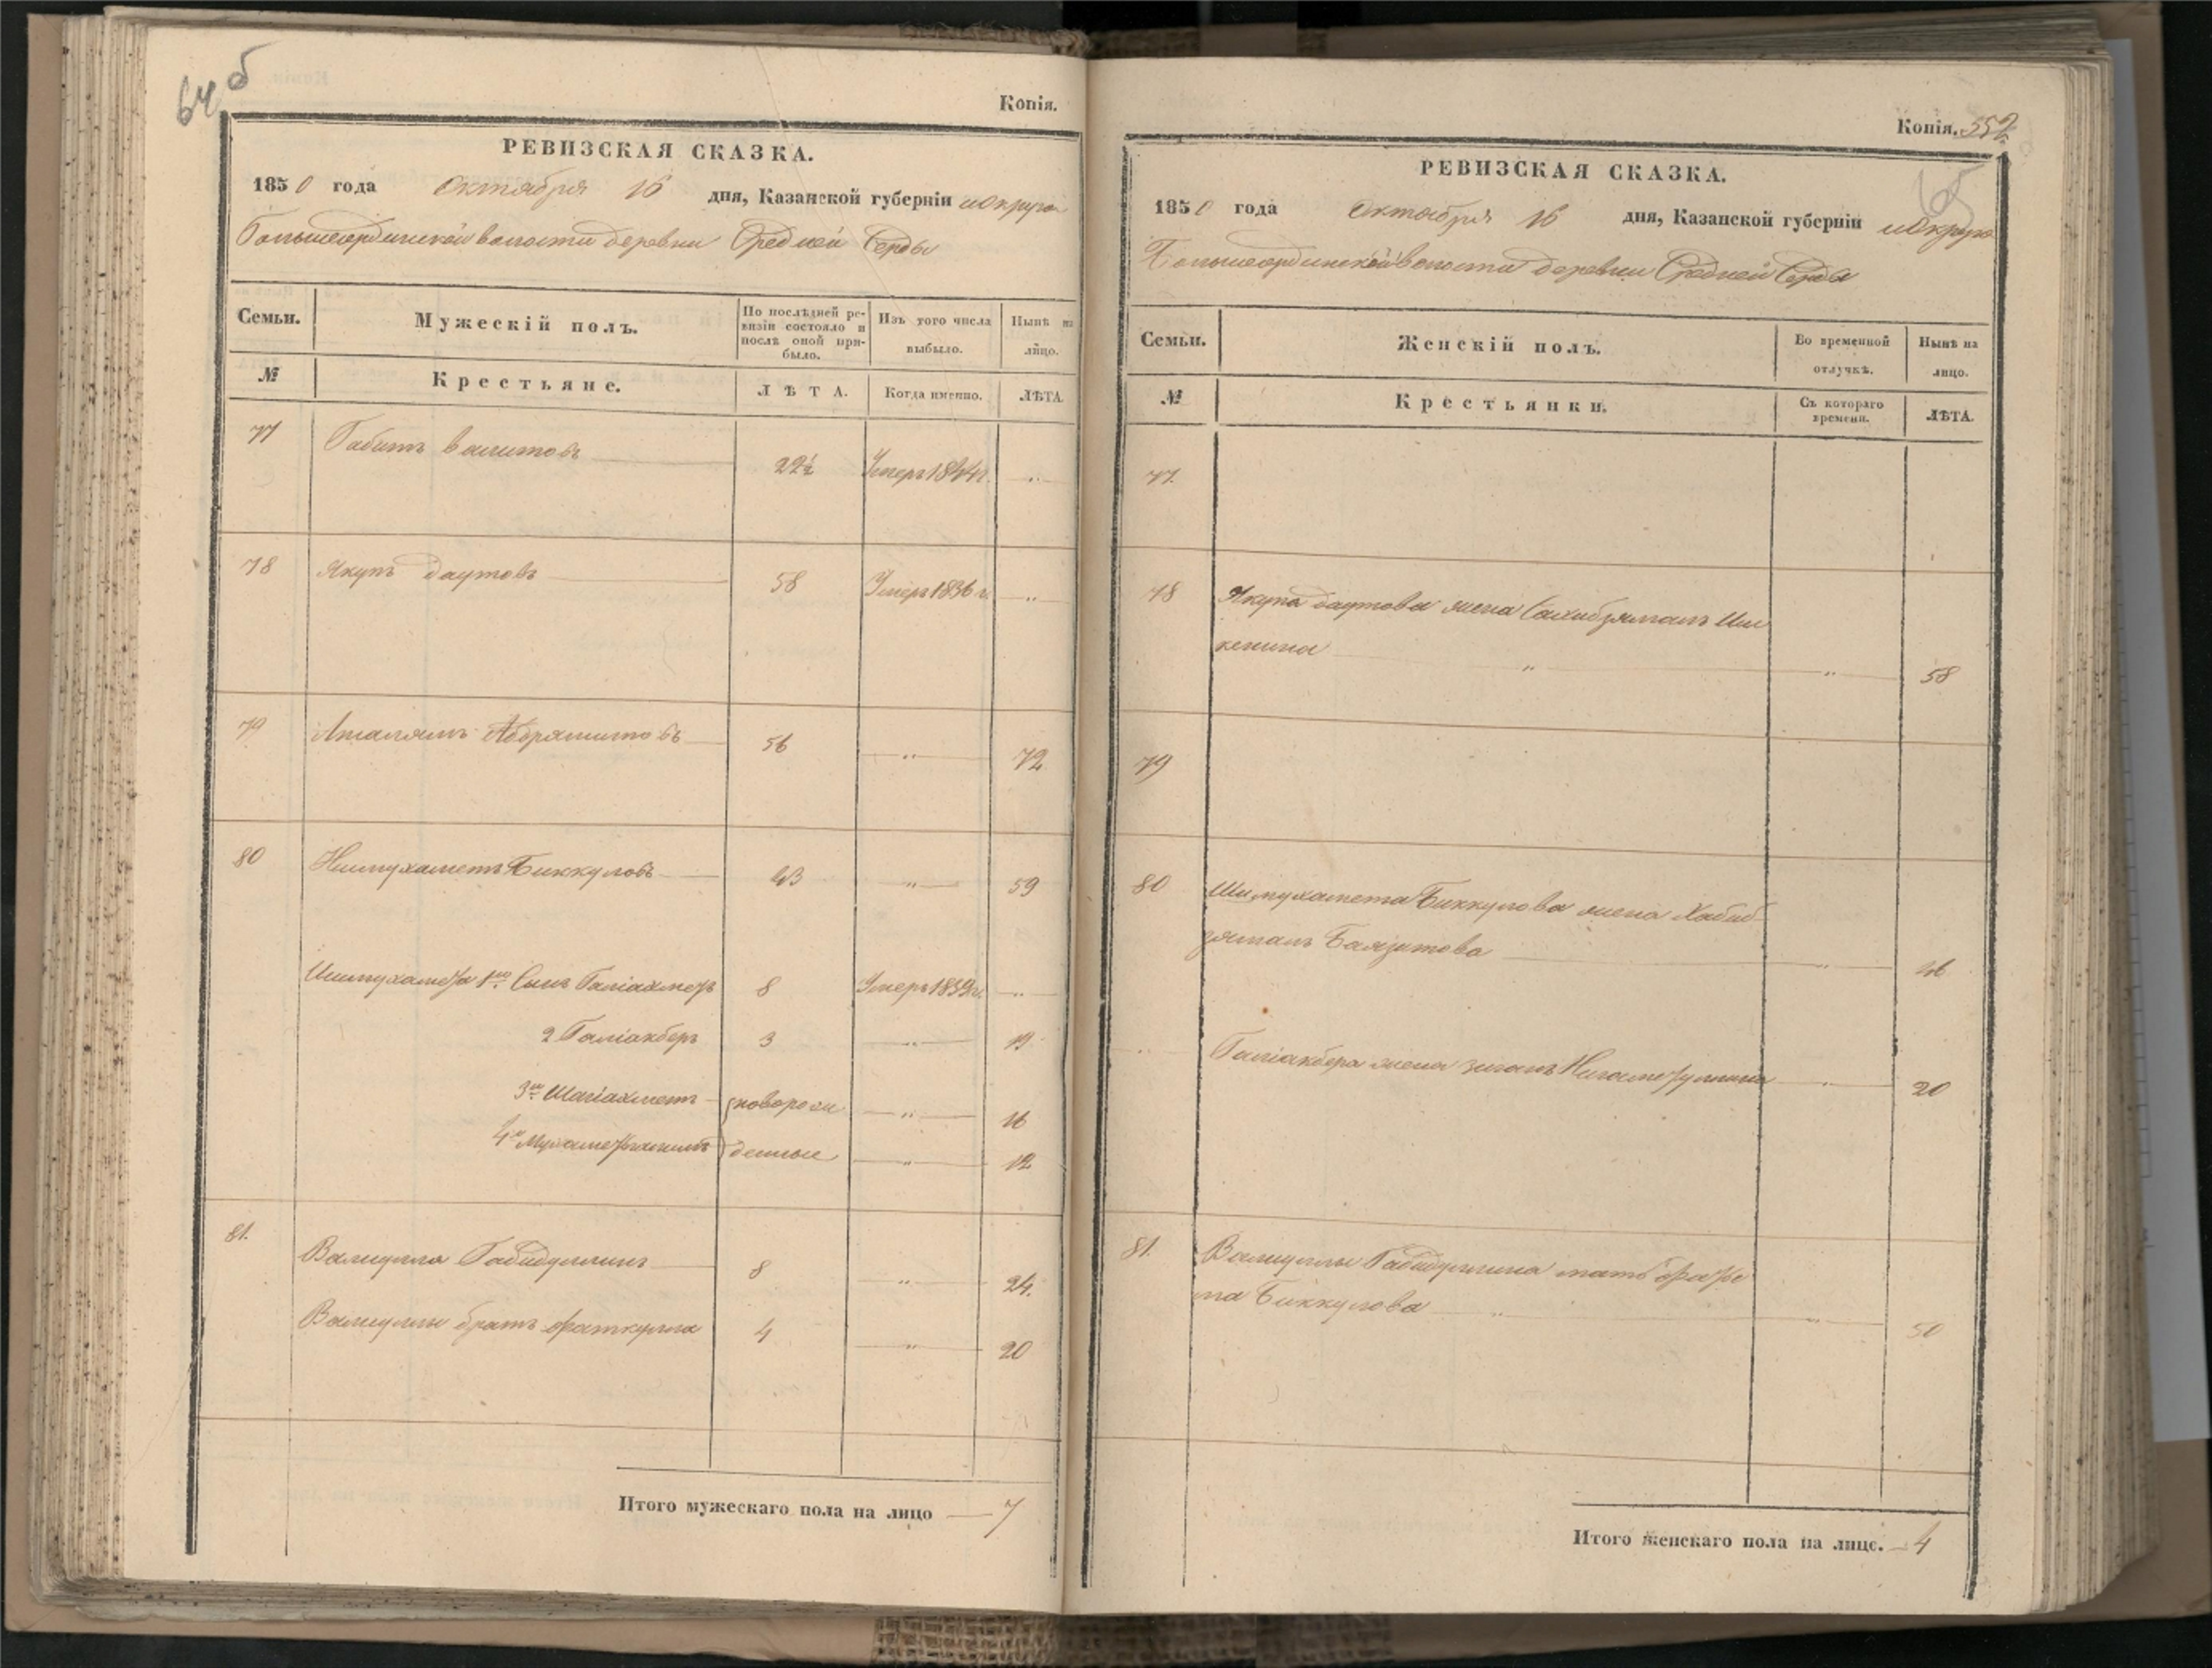 64 об
Копія.
РЕВИЗСКАЯ СКАЗКА.
1850 года Октября 16 дня, Казанской губерніи и округа
волости деревни Средней Серды
Семьи. Мужескій полъ. По послѣдней ре-визіи состояло и послѣ оной при-было. Изъ того числа выбыло. Нынѣ на лицо.
№ Крестьяне. ЛѢТА. Когда именно. ЛѢТА.
77 Габитъ Валитовъ 22½ Умеръ 1844 г. "
78 Якупъ Даутовъ 58 Умеръ 1836 г. "
79 Абдряшитовъ 56 " 72
80 Ишмухаметъ Биккуловъ 43 " 59
Ишмухамета 1й Сынъ Галіахметъ 8 Умеръ 1839 г. "
2 Галіакберъ 3 " 19
3й Шагіахметъ новорож " 16
4й денные " 12
81. Валиулла Габидуллинъ 8 " 24.
Валиуллы братъ Фаткулла 4 " 20
Итого мужескаго пола на лицо 7
Копія. 552
65
РЕВИЗСКАЯ СКАЗКА.
1850 года Октября 16 дня, Казанской губерніи и округа
волости деревни Средней Серды
Семьи. Женскій полъ. Во временной отлучкѣ. Нынѣ на лицо.
№ Крестьянки. Съ котораго времени. ЛѢТА.
77.
78 Якупа Даутова жена Сахибзямалъ Иш
кенина " " 58
79
80 Ишмухамета Биккулова жена Хабиб
зямалъ Баязитова " 46
Галіакбера жена " 20
81. Валиуллы Габидуллина мать
ма Биккулова " " 50
Итого женскаго пола на лицо. 4